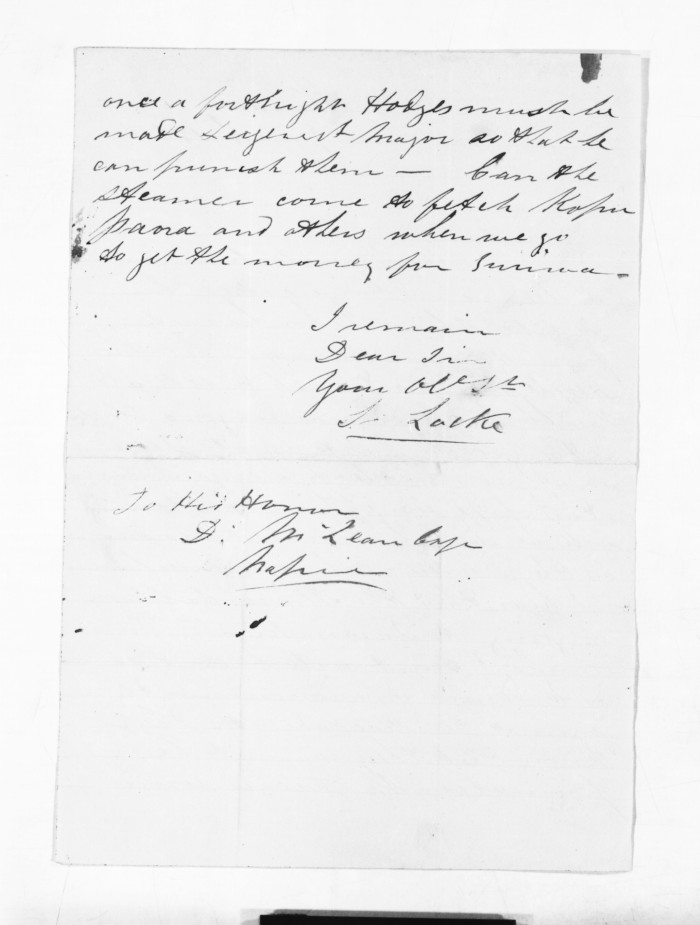 once a fortnight Hodges must be
made Seigent Major so that he
can punish them — Can the
steamer come to fetch Kopu
Paora and others when we go
to get the money for
I remain
Dear Sir
Your Obt St
S. Locke
To His Honor
D. McLean Esqr
Napier